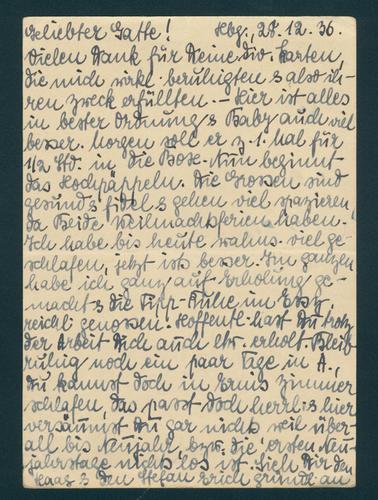 Geliebter Gatte! Hbg. 28.12.36.
Vielen Dank für Deine div. Karten,
die mich wirkl. beruhigten & also ih-
ren Zweck erfüllten. – Hier ist alles
in bester Ordnung & Baby auch viel
besser. Morgen soll er z. 1. Mal für
1/2 Std. in die Box. Nun beginnt
das Hochpäppeln. Die Grossen sind
gesund & fidel & gehen viel spazieren
da Beide Weihnachtsferien haben.
Ich habe bis heute wahns. viel ge-
schlafen, jetzt ists besser. Im ganzen
habe ich ganz auf Erholung ge-
macht & die Tipp-Ruhe im
reichl genossen. Hoffentl. hast Du trotz
der Arbeit Dich auch etw. erholt. Bleib
ruhig noch ein paar Tage in A.,
Du kannst doch in Zimmer
schlafen, das passt doch herrl. & hier
versäumst Du gar nichts weil über-
all bis Neujahr, bzw. die ersten Neu-
jahrstage nichts los ist. Sieh Dir den
Haag & den Stefan Erich gründl. an